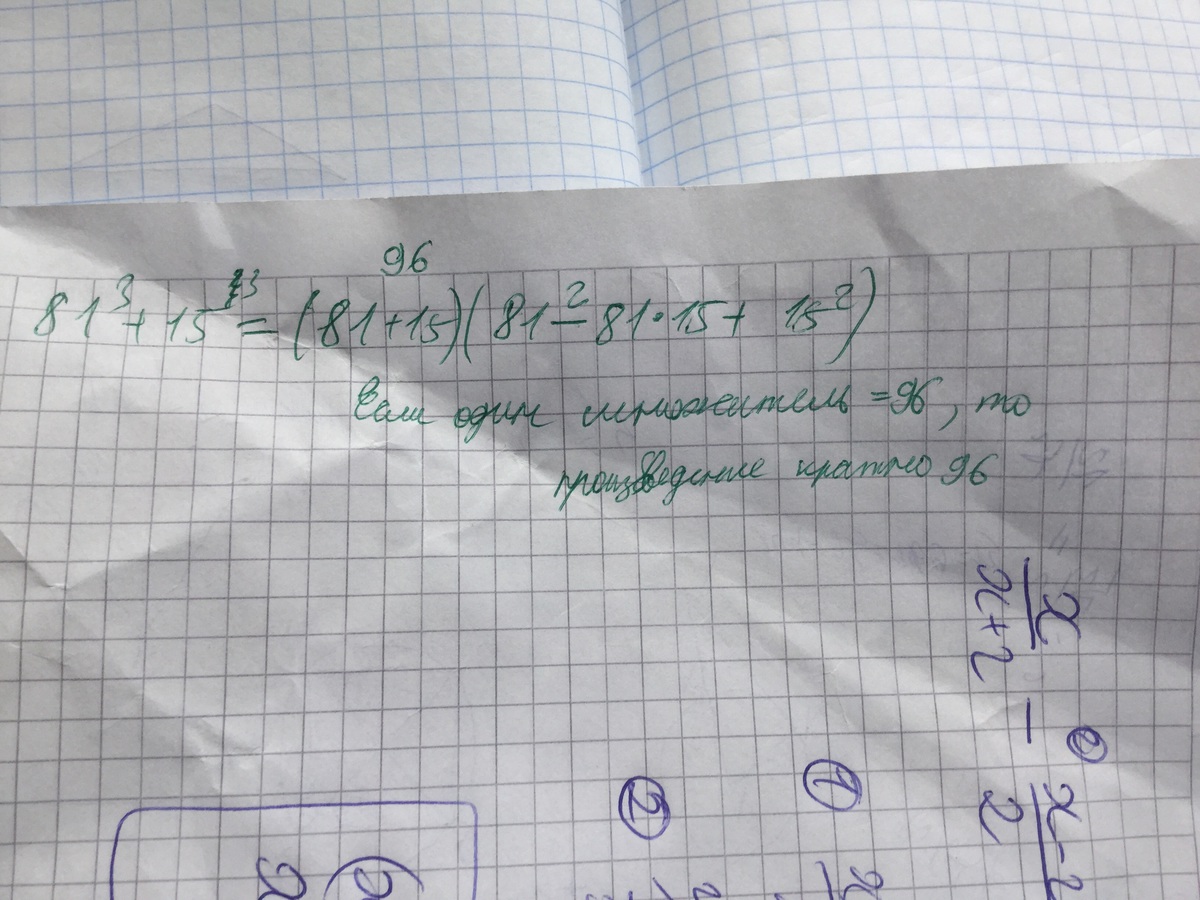 96
81³ + 15³ = (81+15)(81² − 81·15 + 15²)
Если один множитель = 96, то
произведение кратно 96
x/(x+2) − (x−2)/2
②
①
②